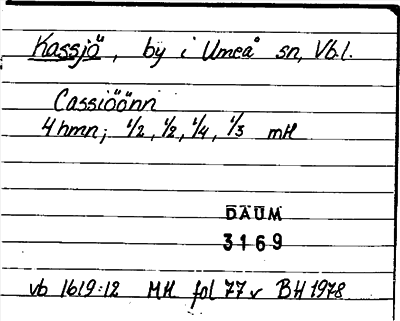 Kassjö, by i Umeå sn, Vb.l.
Cassiöönn
4 hmn; 1/2, 1/2, 1/4, 1/3 mH
DAUM
3169
vb 1619:12 MH fol 77 v BH 1978